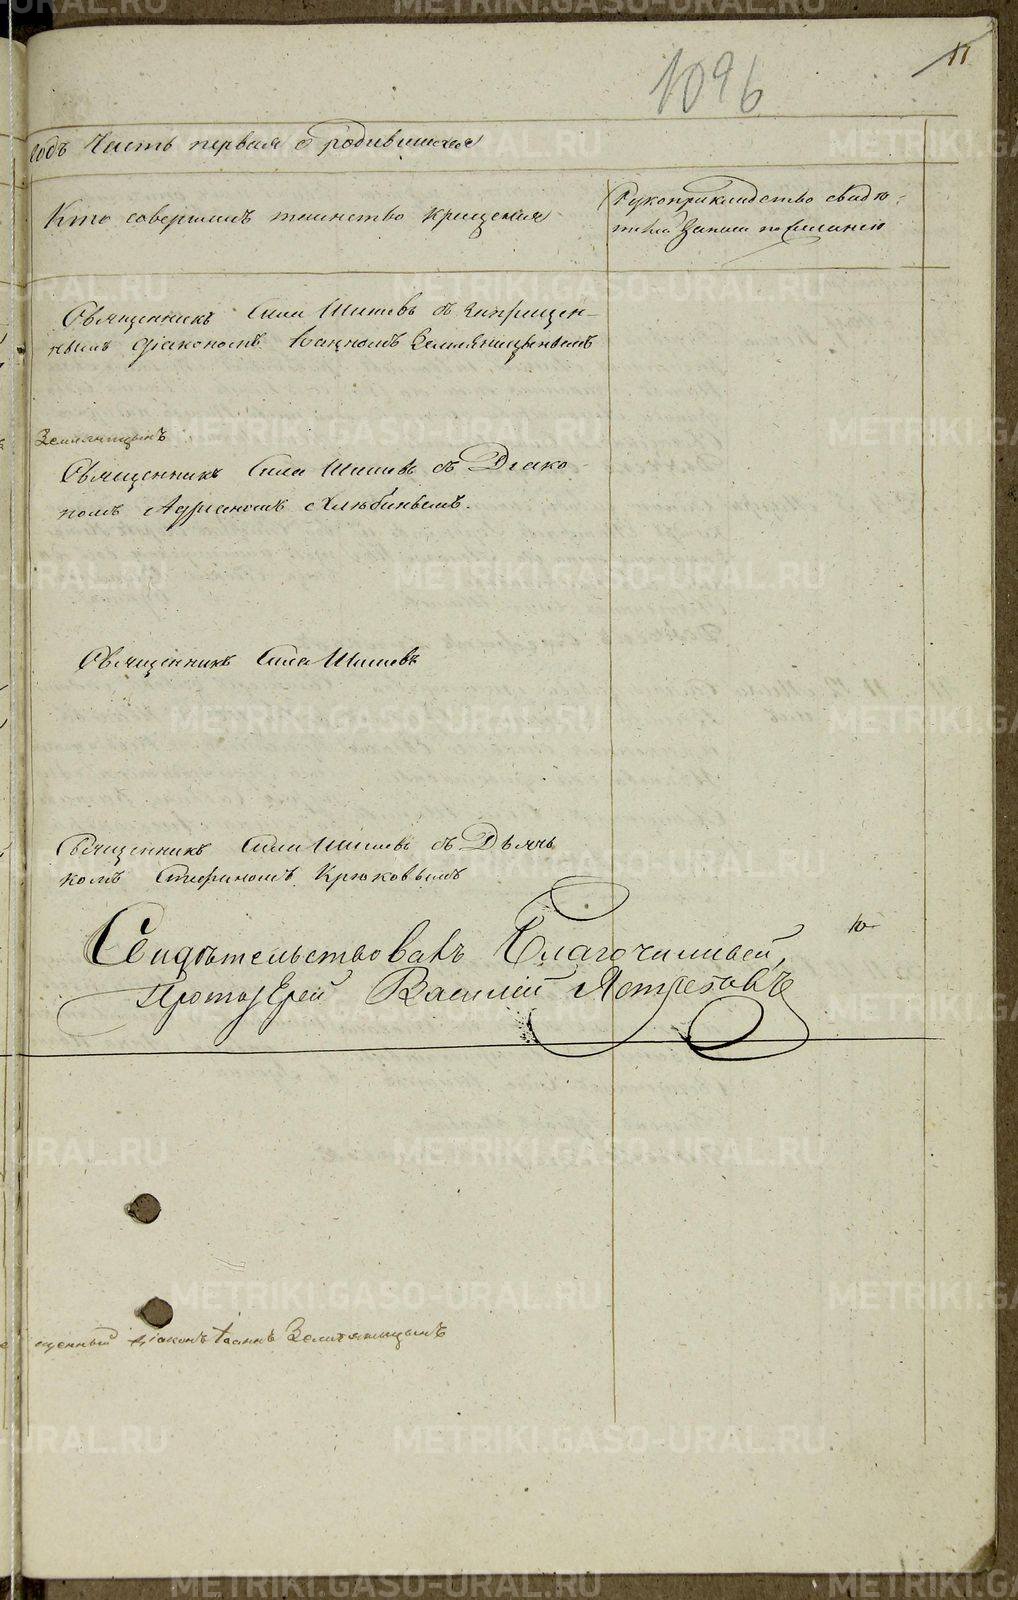 11
1096
годъ Часть первая о родившихся
Кто совершалъ таинство крещения
Рукоприкладство свидѣ-
телей записи по желанію
Священникъ Сила Шишовъ съ запрещен-
нымъ діакономъ Іоанномъ Земляницынымъ
Земляницынъ
Священникъ Сила Шишовъ съ Діако
номъ Адріаномъ Хлюбинымъ.
Священникъ Сила Шишовъ
Священникъ Сила Шишовъ съ Дьяч
комъ Стефаномъ Крюковымъ
Свидѣтельствовалъ Благочинный,
Протоіерей Василій Ястребовъ
щенный діаконъ Іоаннъ Земляницынъ
METRIKI.GASO-URAL.RU